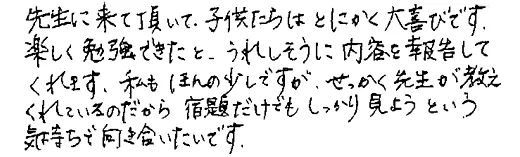 先生に来て頂いて、子供たちはとにかく大喜びです。
楽しく勉強できたと、うれしそうに内容を報告して
くれます。私もほんの少しですが、せっかく先生が教え
くれているのだから宿題だけでもしっかり見ようという
気持ちで向き合いたいです。